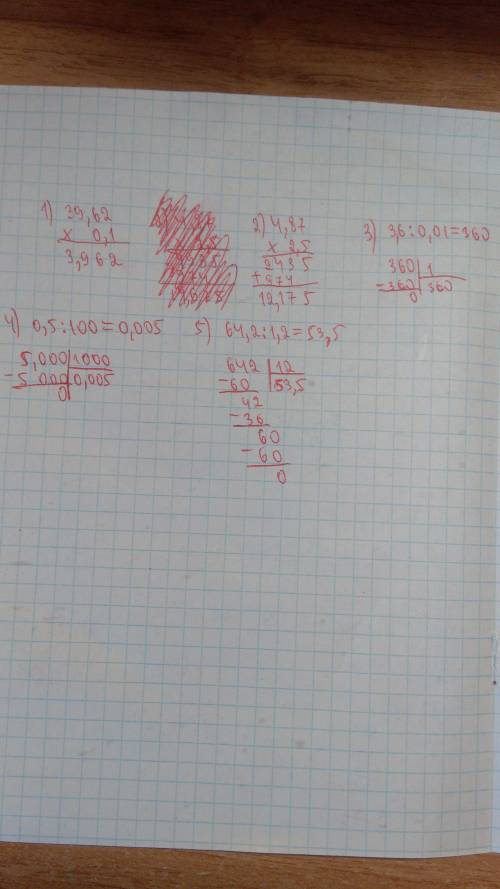 1) 39,62
x 0,1
3,962
2) 4,87
x 2,5
2435
+ 974
12,175
3) 3,6:0,01=360
360 1
-360 360
0
4) 0,5:100=0,005
5,000 1000
-5 000 0,005
0
5) 64,2:1,2=53,5
642 12
-60 53,5
42
-36
60
-60
0